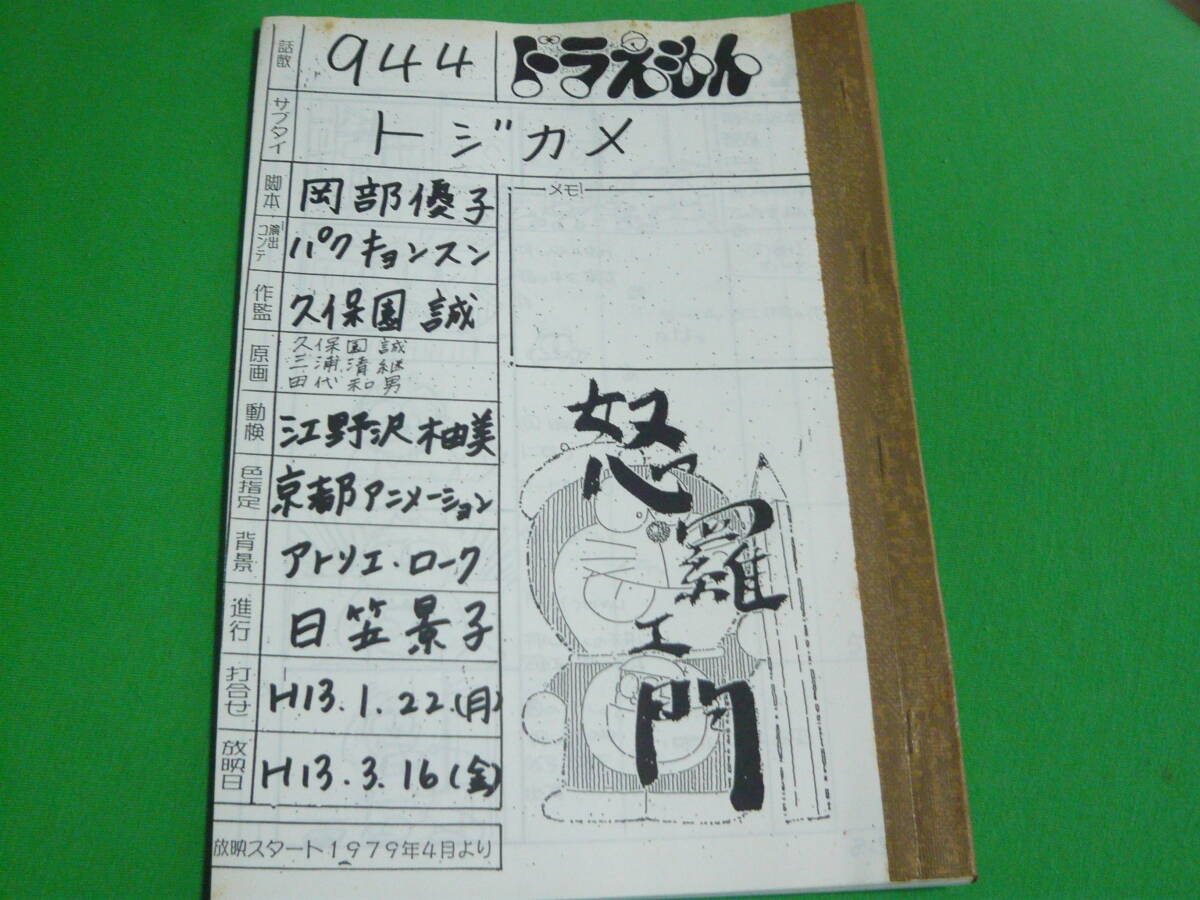 話数 944 ドラえもん
サブタイ トジカメ
脚本 岡部優子
メモ!
演出 コンテ パクキョンスン
作監 久保園誠
原画 久保園誠
三浦清継
田代和男
動検 江野沢柚美
色指定 京都アニメーション
背景 アトリエ・ローク
進行 日笠景子
打合せ H13.1.22(月)
放映日 H13.3.16(金)
放映スタート1979年4月より
怒羅エ門